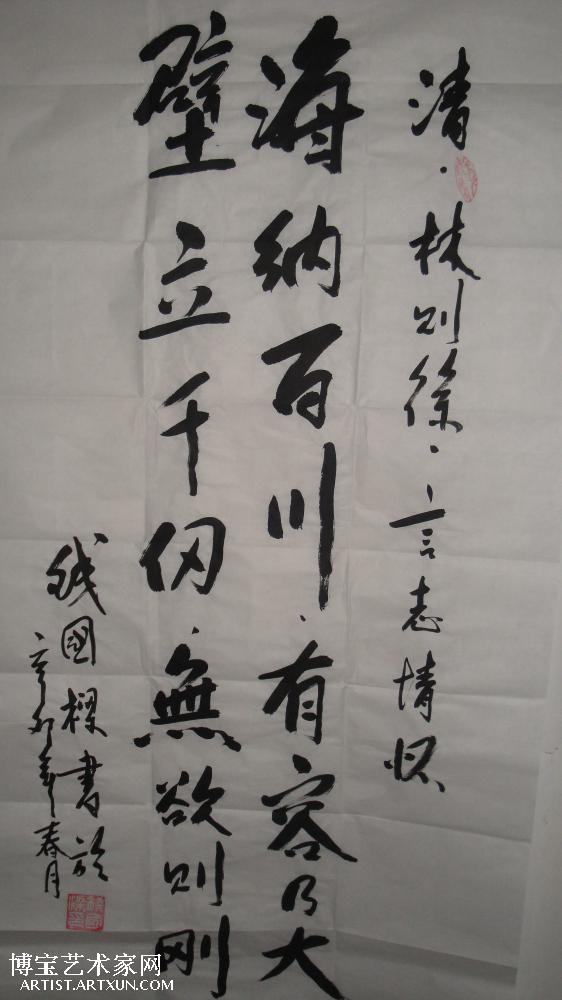 清·林则徐·言志情怀
海纳百川·有容乃大
壁立千仞·無欲则刚
國樑書於
辛卯年春月
博宝艺术家网
ARTIST.ARTXUN.COM